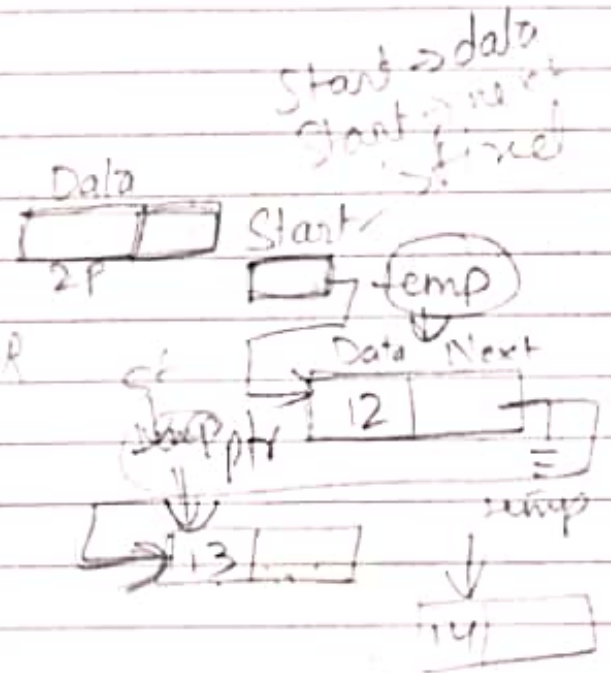 Start → data
Start → next
Data
Start
2P
temp
Data Next
12
ptr
temp
13
14